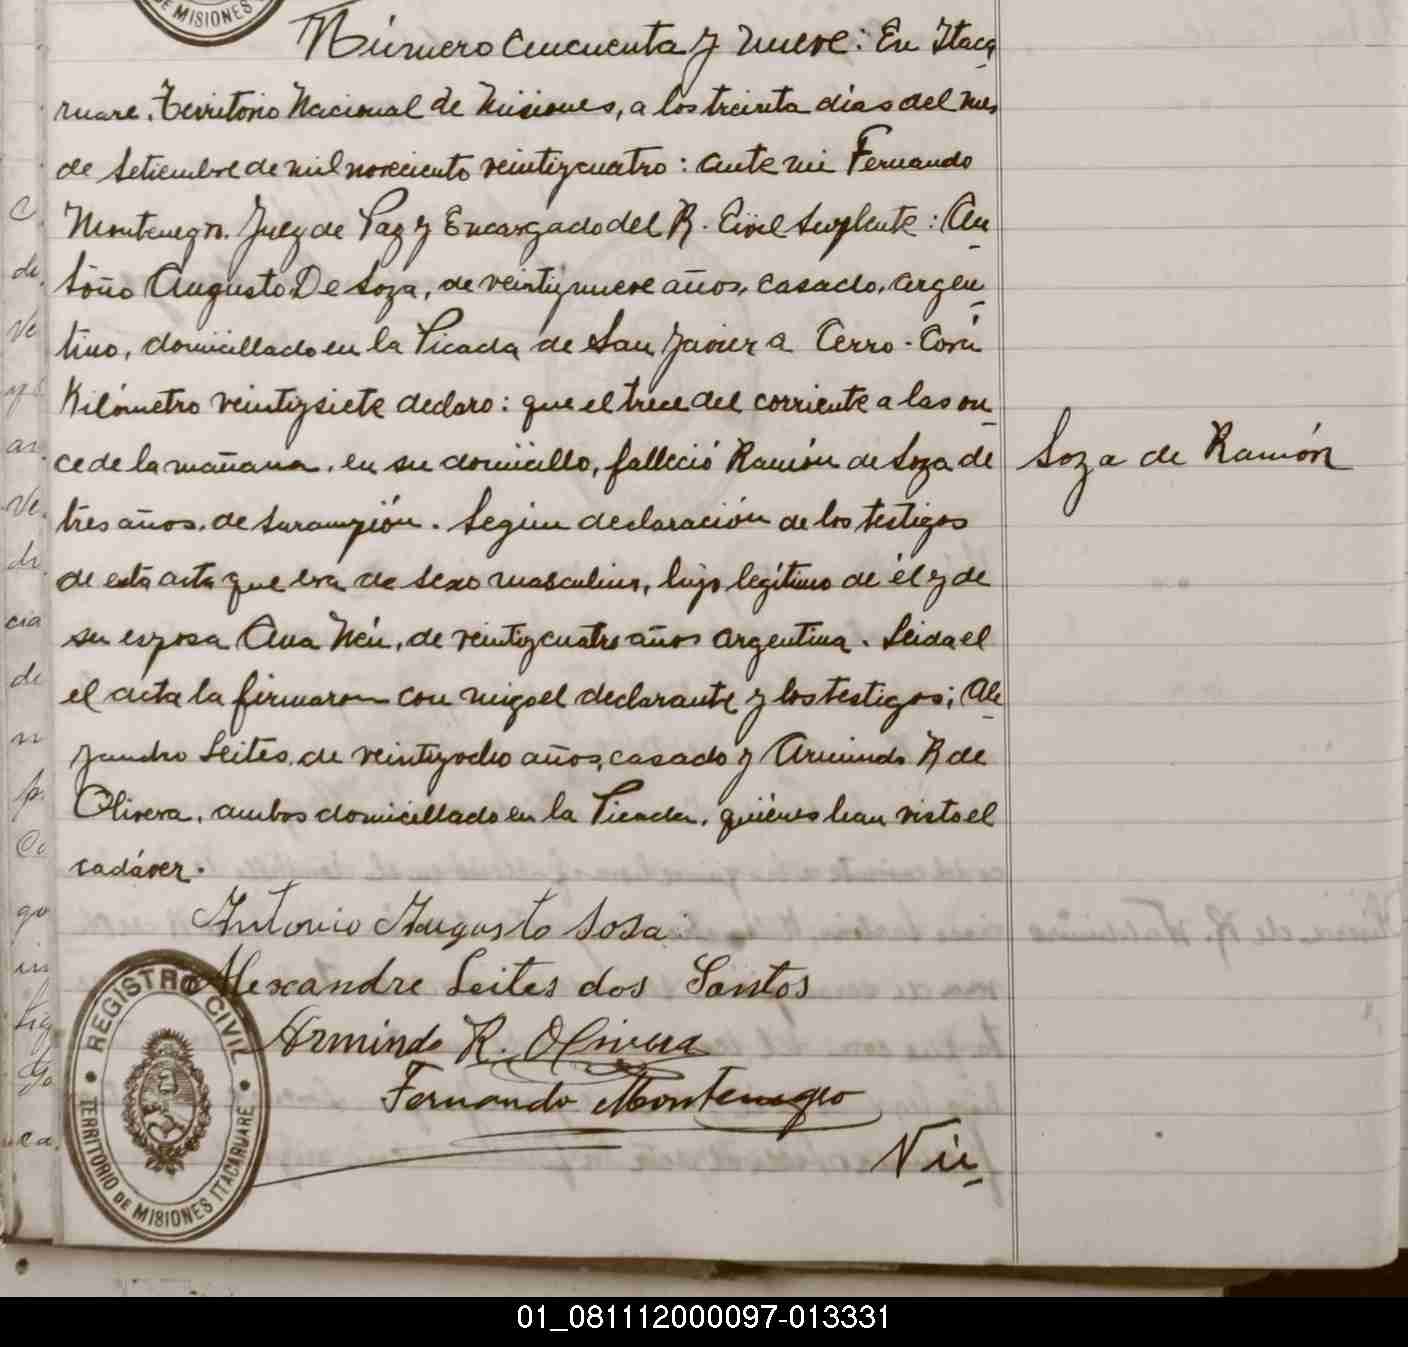 DE MISIONES
Número cincuenta y nueve: En Itaca
ruare, Territorio Nacional de Misiones, a los treinta dias del mes
de Setiembre de mil noveciento veintiycuatro: ante mi Fernando
Montenegro. Juez de Paz y Encargado del R. Civil Suplente: An
toño Augusto De Soza, de veintiynueve años, casado, argen
tino, domicillado en la Picada de San Javier a Cerro-Corá
Kilómetro veintiysiete declaro: que el trece del corriente a las on
ce de la mañana, en su domicillo, falleció Ramón de Soza de
Soza de Ramón
tres años, de Sarampión. Según declaración de los testigos
de esta acta que era de sexo masculino, hijo legítimo de él y de
su esposa Ana Neu, de veintiycuatro años argentina. Leida el
el acta la firmaron con migo el declarante y los testigos; Ale
jandro Leites, de veintiyocho años, casado y Armindo R de
Olivera, ambos domicillado en la Picada, quiénes han visto el
cadáver.
Antonio Augusto Sosa
Alexandre Leites dos Santos
Armindo R. Olivera
Fernando Montenegro
REGISTRO CIVIL
TERRITORIO DE MISIONES ITACARUARE
01_081112000097-013331